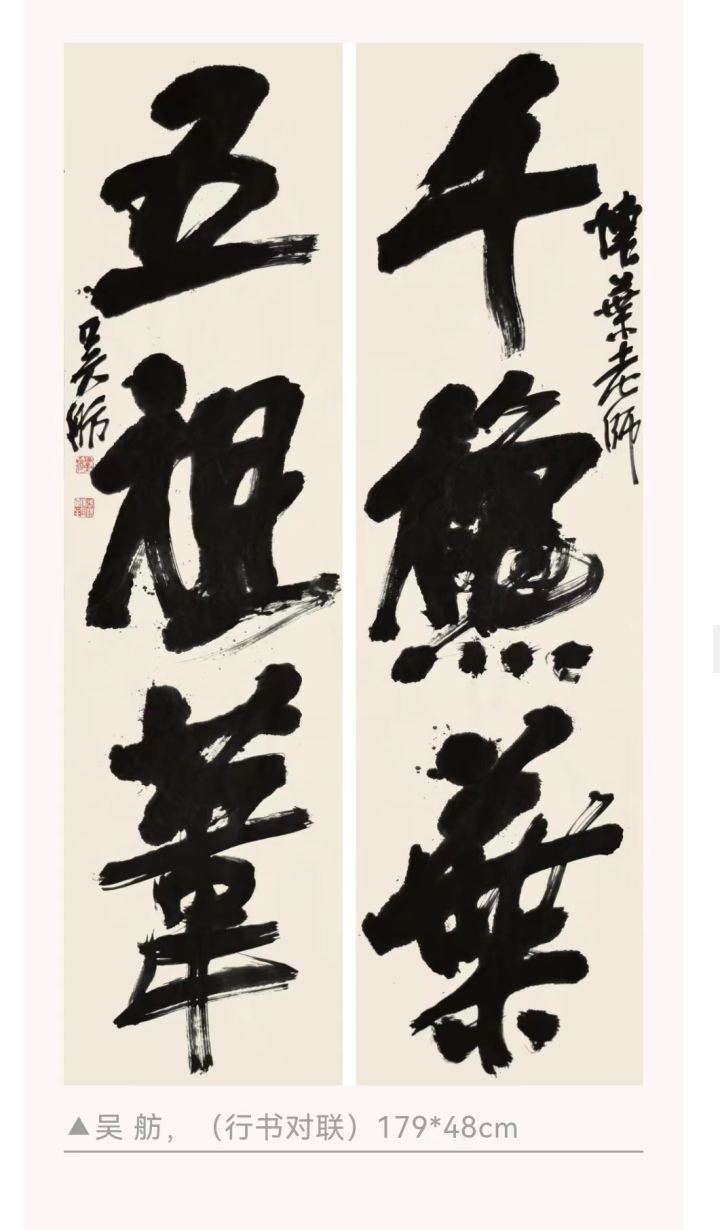 葉老师
千葉
五祖華
吴舫
▲吴 舫，（行书对联）179*48cm